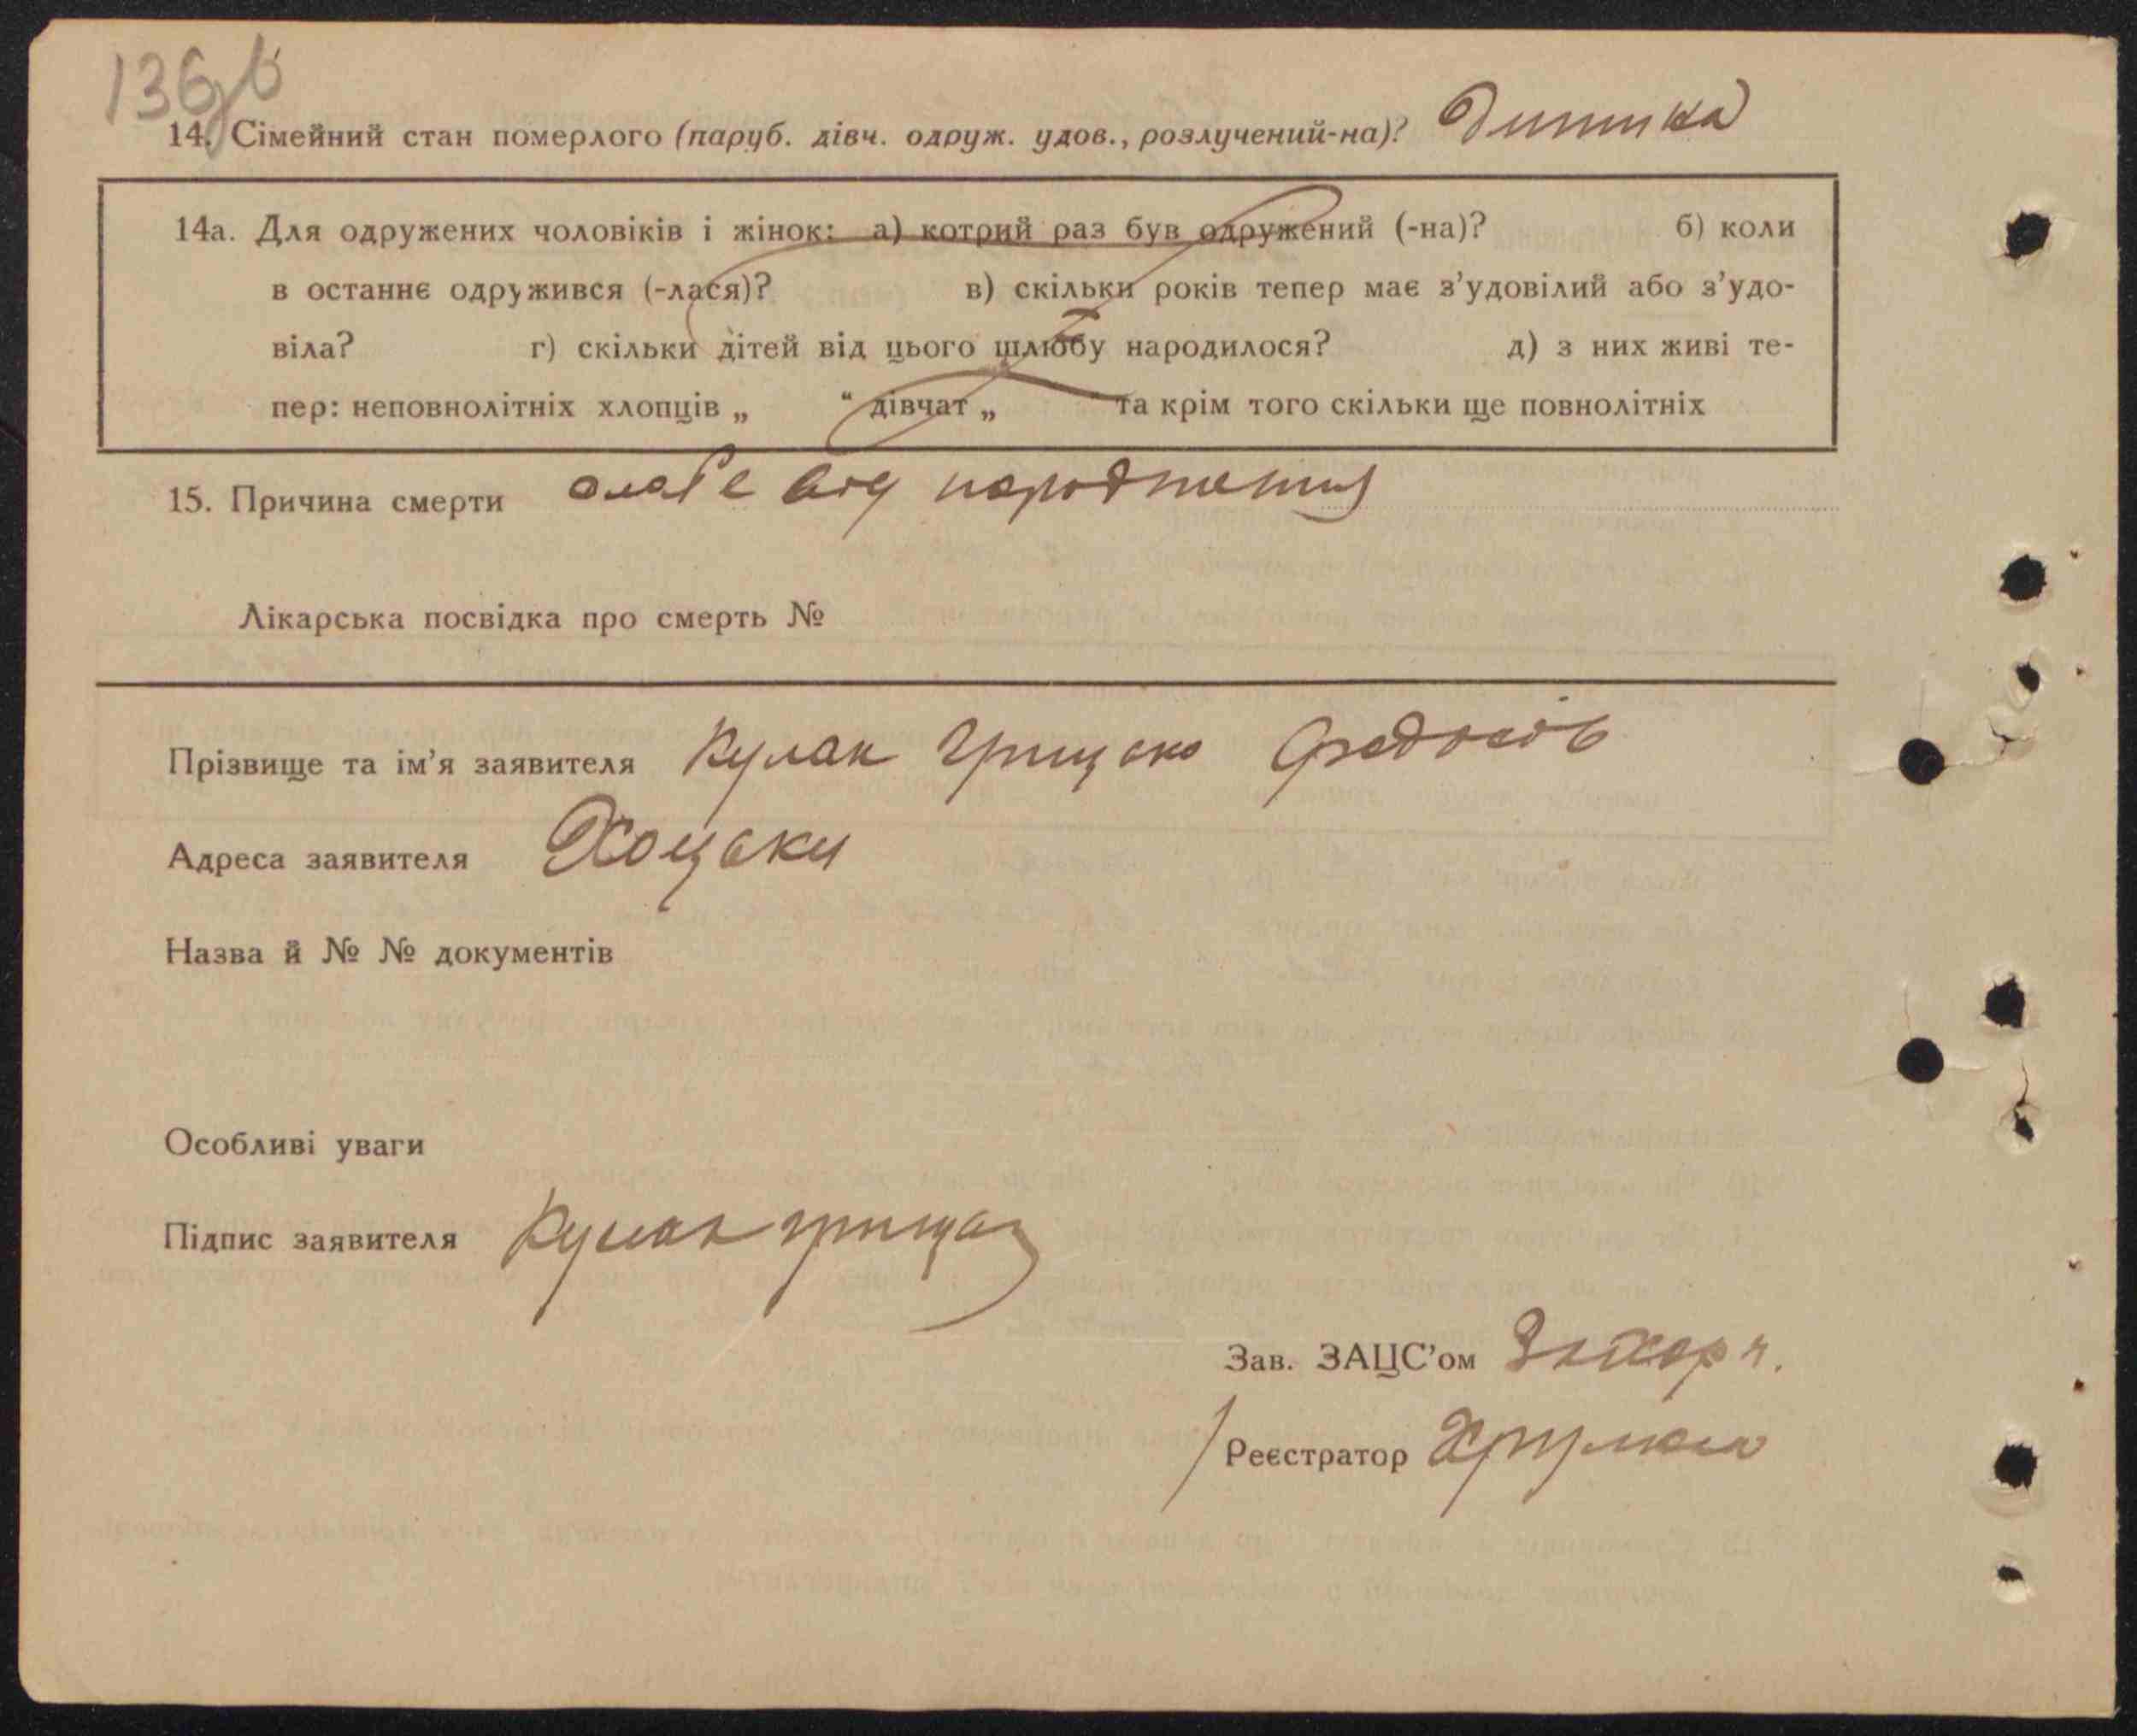 136
14. Сімейний стан померлого (паруб. дівч. одруж. удов., розлучений-на)? Дитика
14а. Для одружених чоловіків і жінок: а) котрий раз був одружений (-на)? б) коли
в останнє одружився (-лася)? в) скільки років тепер має з'удовілий або з'удо-
віла? г) скільки дітей від цього шлюбу народилося? д) з них живі те-
пер: неповнолітніх хлопців „ “ дівчат „ та крім того скільки ще повнолітніх
15. Причина смерти слабе від народження
Лікарська посвідка про смерть №
Прізвище та ім'я заявителя Кулак Грицько Федосів
Адреса заявителя Хоцьки
Назва й № № документів
Особливі уваги
Підпис заявителя Кулак
Зав. ЗАЦС'ом
Реєстратор